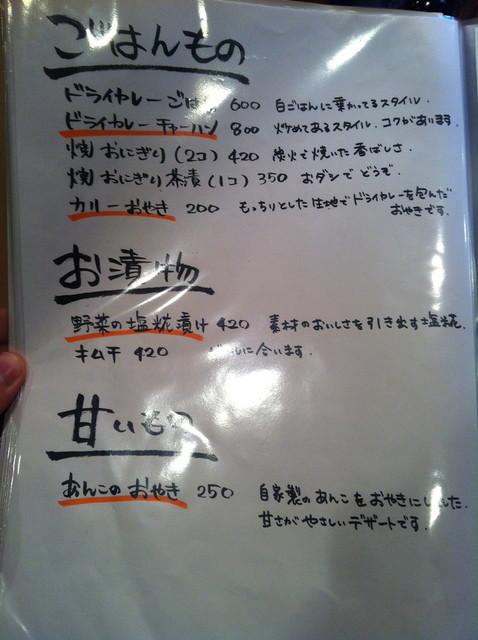 ごはんもの
ドライカレーごはん 600 白ごはんに乗かってるスタイル.
ドライカレーチャーハン 800 炒めてあるスタイル. コクがあります.
焼おにぎり(2コ) 420 炭火で焼いた香ばしさ.
焼おにぎり茶漬(1コ) 350 おダシでどうぞ.
カリーおやき 200 もっちりとした生地でドライカレーを包んだ
おやきです.
お漬物
野菜の塩糀漬け 420 素材のおいしさを引き出す塩糀.
キムチ 420 に合います.
甘いもの
あんこのおやき 250 自家製のあんこをおやきにしました.
甘さがやさしいデザートです.